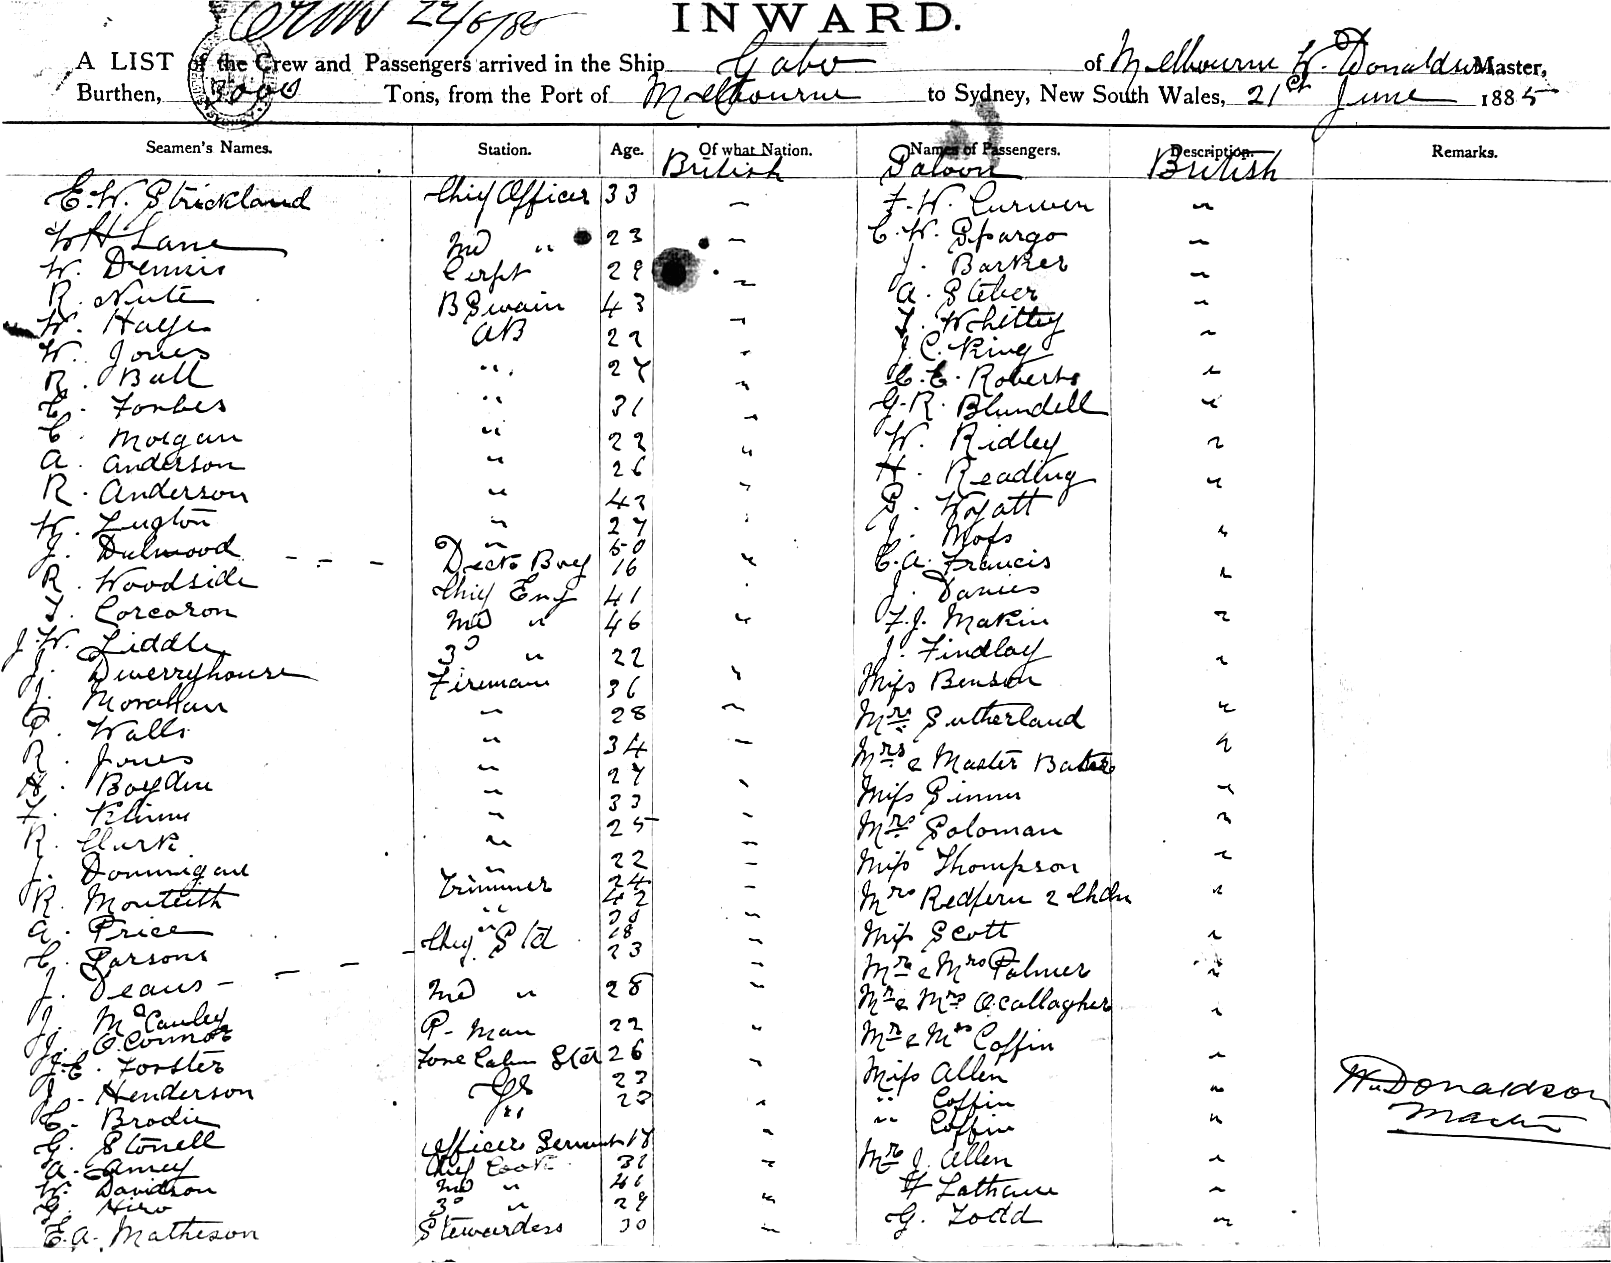 22/6/85
INWARD.
A LIST of the Crew and Passengers arrived in the Ship Gabo of Melbourne W. Donaldson Master,
Burthen, 3000 Tons, from the Port of Melbourne to Sydney, New South Wales, 21st June 1885
Seamen's Names. Station. Age. Of what Nation. Names of Passengers. Description. Remarks.
British Saloon British
E. W. Strickland Chief Officer 33 " F. W. Curwen "
W H Lane 2nd " 23 " C. W. Spargo "
W. Dennis Carpt 29 " J. Barker "
R. Nute BSwain 43 " A. Steber "
W. Haye AB 22 " T. Whitty "
W. Jones " 27 " J. C. King "
R. Ball " 31 " C. E. Roberts "
C. Forbes " 22 " G. R. Blundell "
C. Morgan " 26 " W. Ridley "
A. Anderson " 43 " H. Reading "
R. Anderson " 27 " S. Wyatt "
W. Lugton " 50 " J. Moss "
J. Dulwood - - - Deck Boy 16 " C. A. Francis "
R. Woodside Chief Eng 41 " J. Davies "
T. Corcoron 2nd " 46 " F. J. Makin "
J. W. Liddle 3d " 22 " J. Findlay "
J. Dwerryhouse Fireman 36 " Miss Benson "
J. Morahan " 28 " Mrs Sutherland "
P. Walls " 34 " Mrs & Master "
R. Jones " 27 " Miss "
H. Boyden " 33 " Mrs Soloman "
F. " 25 " Miss Thompson "
R. Clark " 22 " Mrs Redfern 2 Chdn "
J. Donnigan Trimmer 24 " Miss Scott "
R. Monteith " 42 " Mr & Mrs Palmer "
A. Price " " Mr & Mrs O'Callagher "
C. Parsons - - - 18 " Mr & Mrs Coffin "
J. Deans - Chief Std 23 " Miss Allen "
J. McCauley 2nd " 28 " " Coffin "
J. O'Connor P. Man 22 " " Coffin "
J. E. Forster Fore Cabin Std 26 " Mr J. Allen "
J. Henderson 23 " H Latham "
C. Brodie " " G. Todd "
G. Stonell Officers Servant 17 "
A. Amey Chief Cook 31 "
W. Davidson 2nd " 41 "
G. Hiro 3d " 29 "
E. A. Matheson Stewardess 30 "
Wm Donaldson
Master